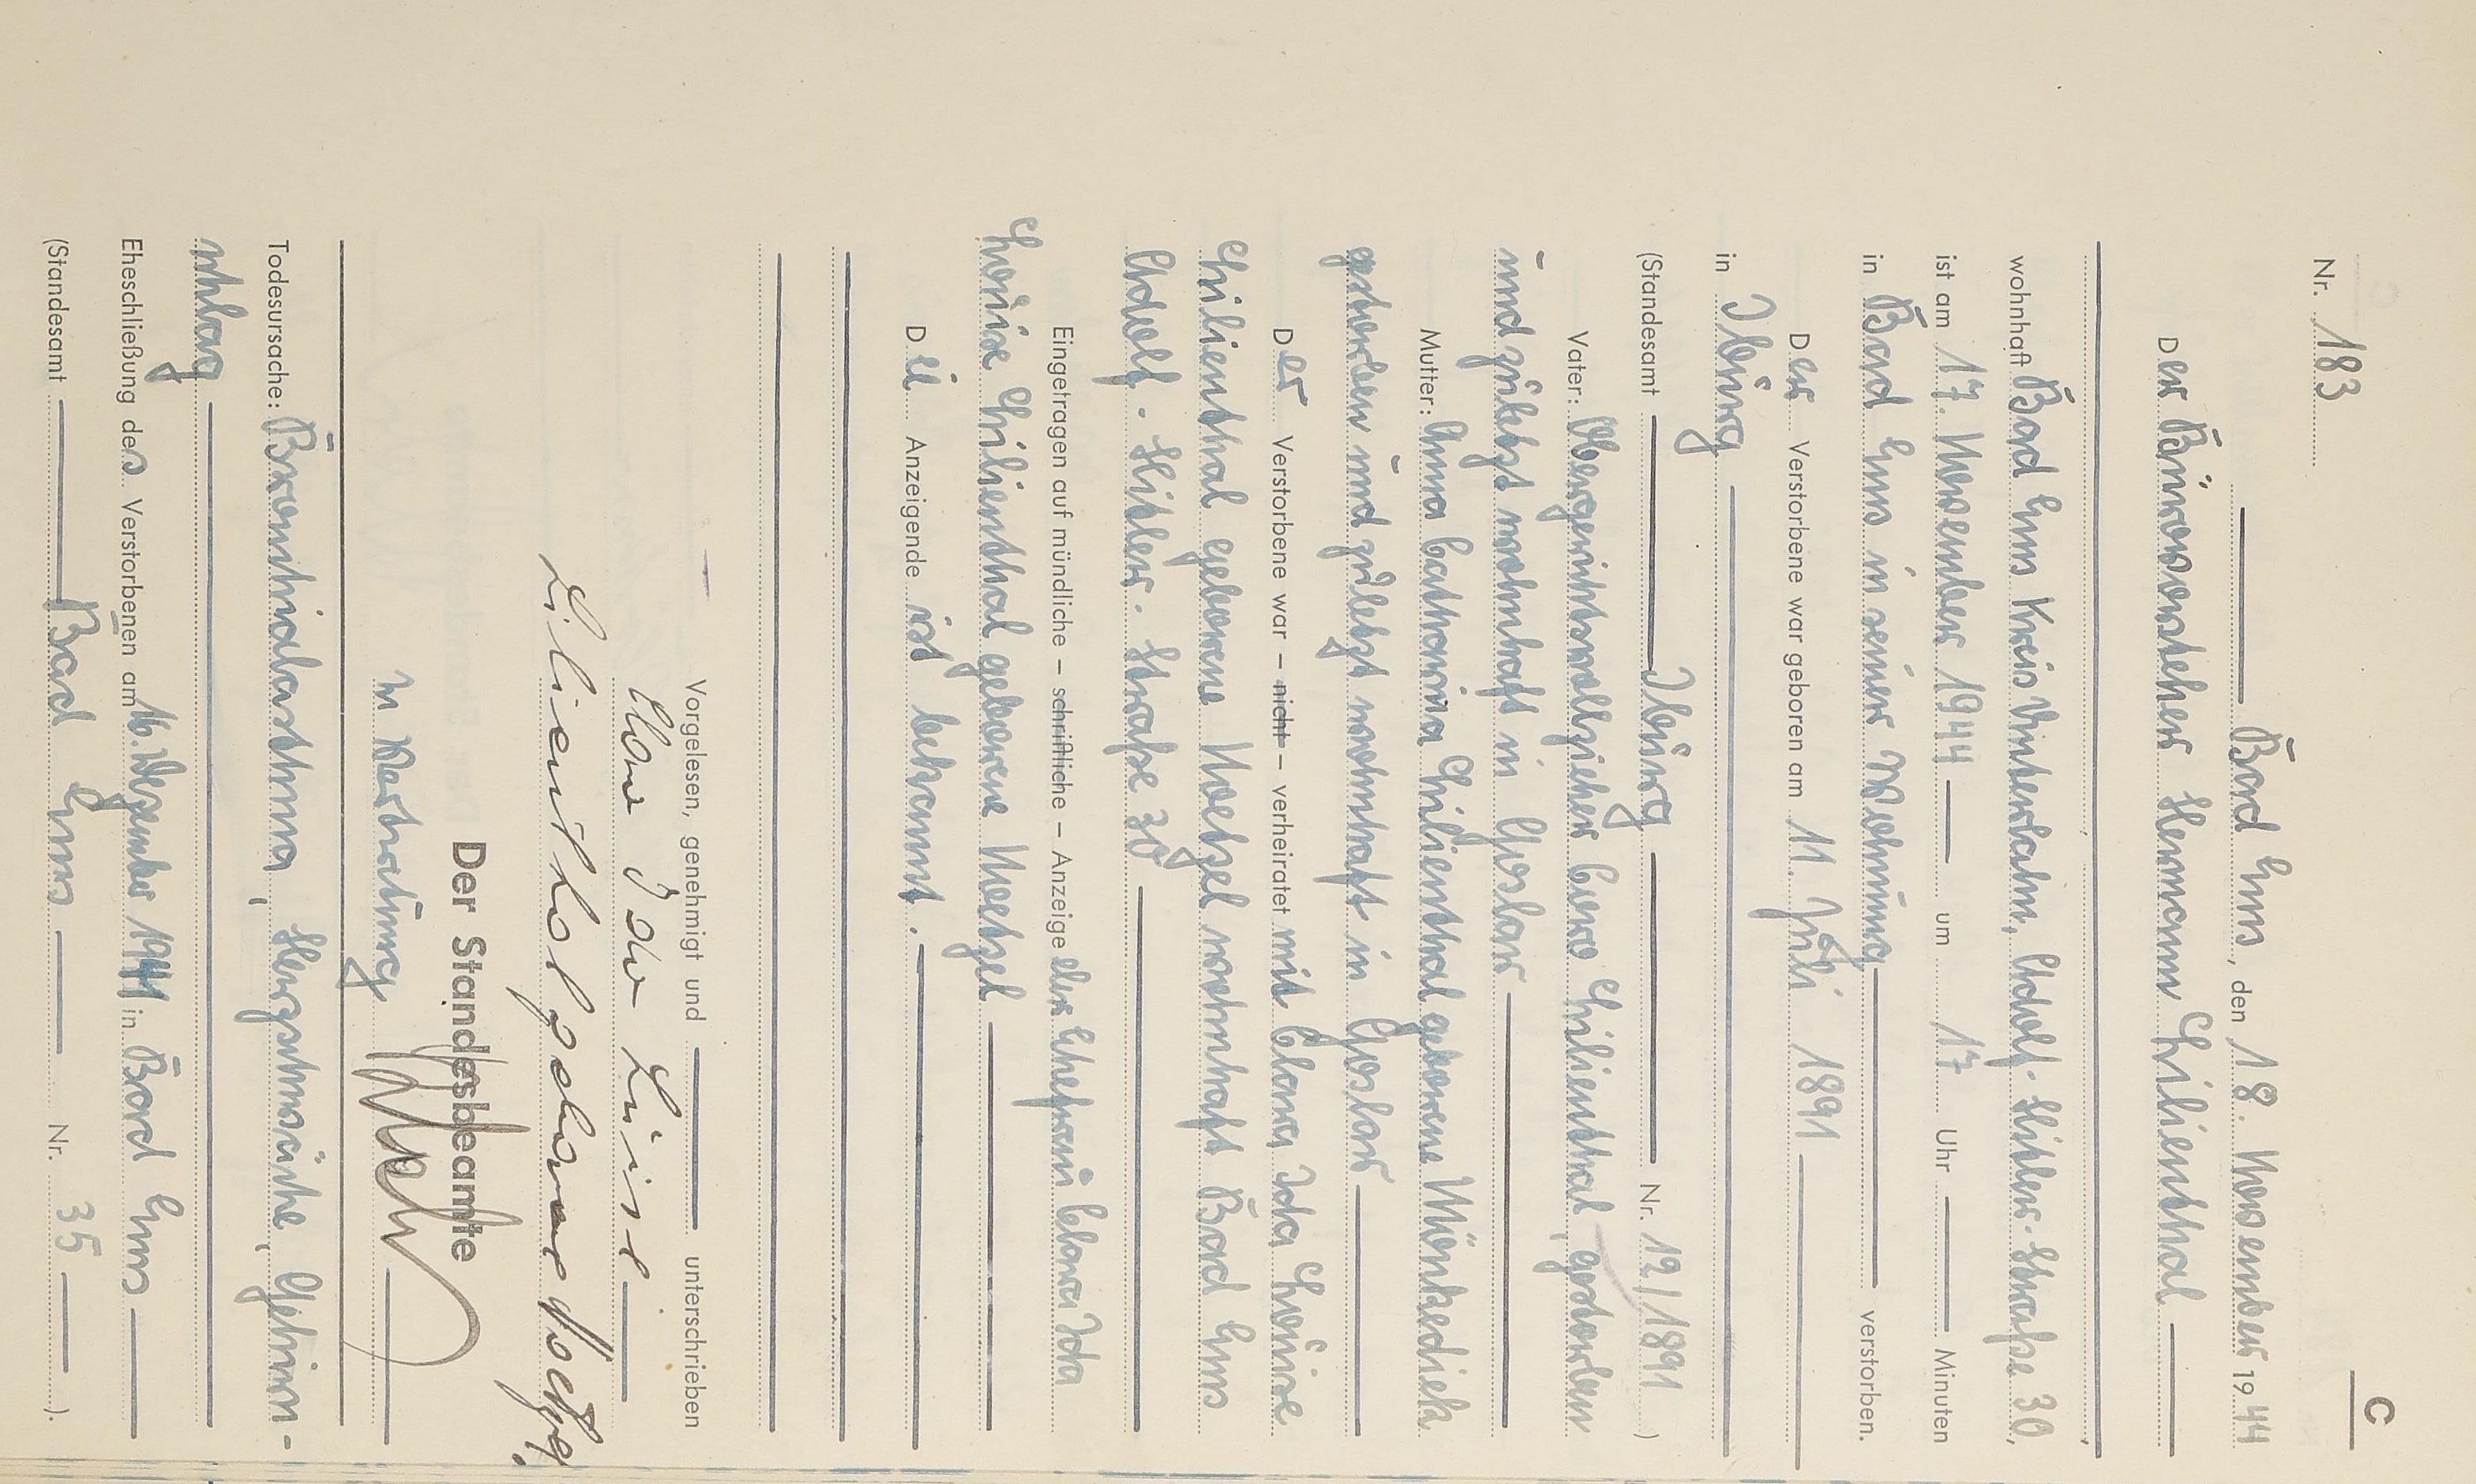 C
Nr. 183
Bad Ems, den 18. November 1944
Der Bürovorsteher Hermann Lilienthal
wohnhaft Bad Ems Kreis Unterlahn, Adolf-Hitler-Straße 30,
ist am 17. November 1944 um 17 Uhr Minuten
in Bad Ems in seiner Wohnung verstorben.
Der Verstorbene war geboren am 11. Juli 1891
in Iburg
(Standesamt Iburg Nr. 12/1891)
Vater: Obergerichtsvollzieher Lilienthal, gestorben
und zuletzt wohnhaft in Goslar
Mutter: Anna Catharina Lilienthal geborene Münkediek
gestorben und zuletzt wohnhaft in Goslar
Der Verstorbene war – nicht – verheiratet mit Clara Ida Louise
Lilienthal geborene Noetzel wohnhaft Bad Ems
Adolf-Hitler-Straße 30
Eingetragen auf mündliche – schriftliche – Anzeige der Ehefrau Clara Ida
Louise Lilienthal geborene Noetzel
Die Anzeigende ist bekannt.
Vorgelesen, genehmigt und unterschrieben
Clara Ida Luise
Lilienthal geborene Noetzel
Der Standesbeamte
In Vertretung
Todesursache: Bronchialasthma, Herzschwäche, Gehirn-
schlag
Eheschließung des Verstorbenen am 16. Dezember 1941 in Bad Ems
(Standesamt Bad Ems Nr. 35)